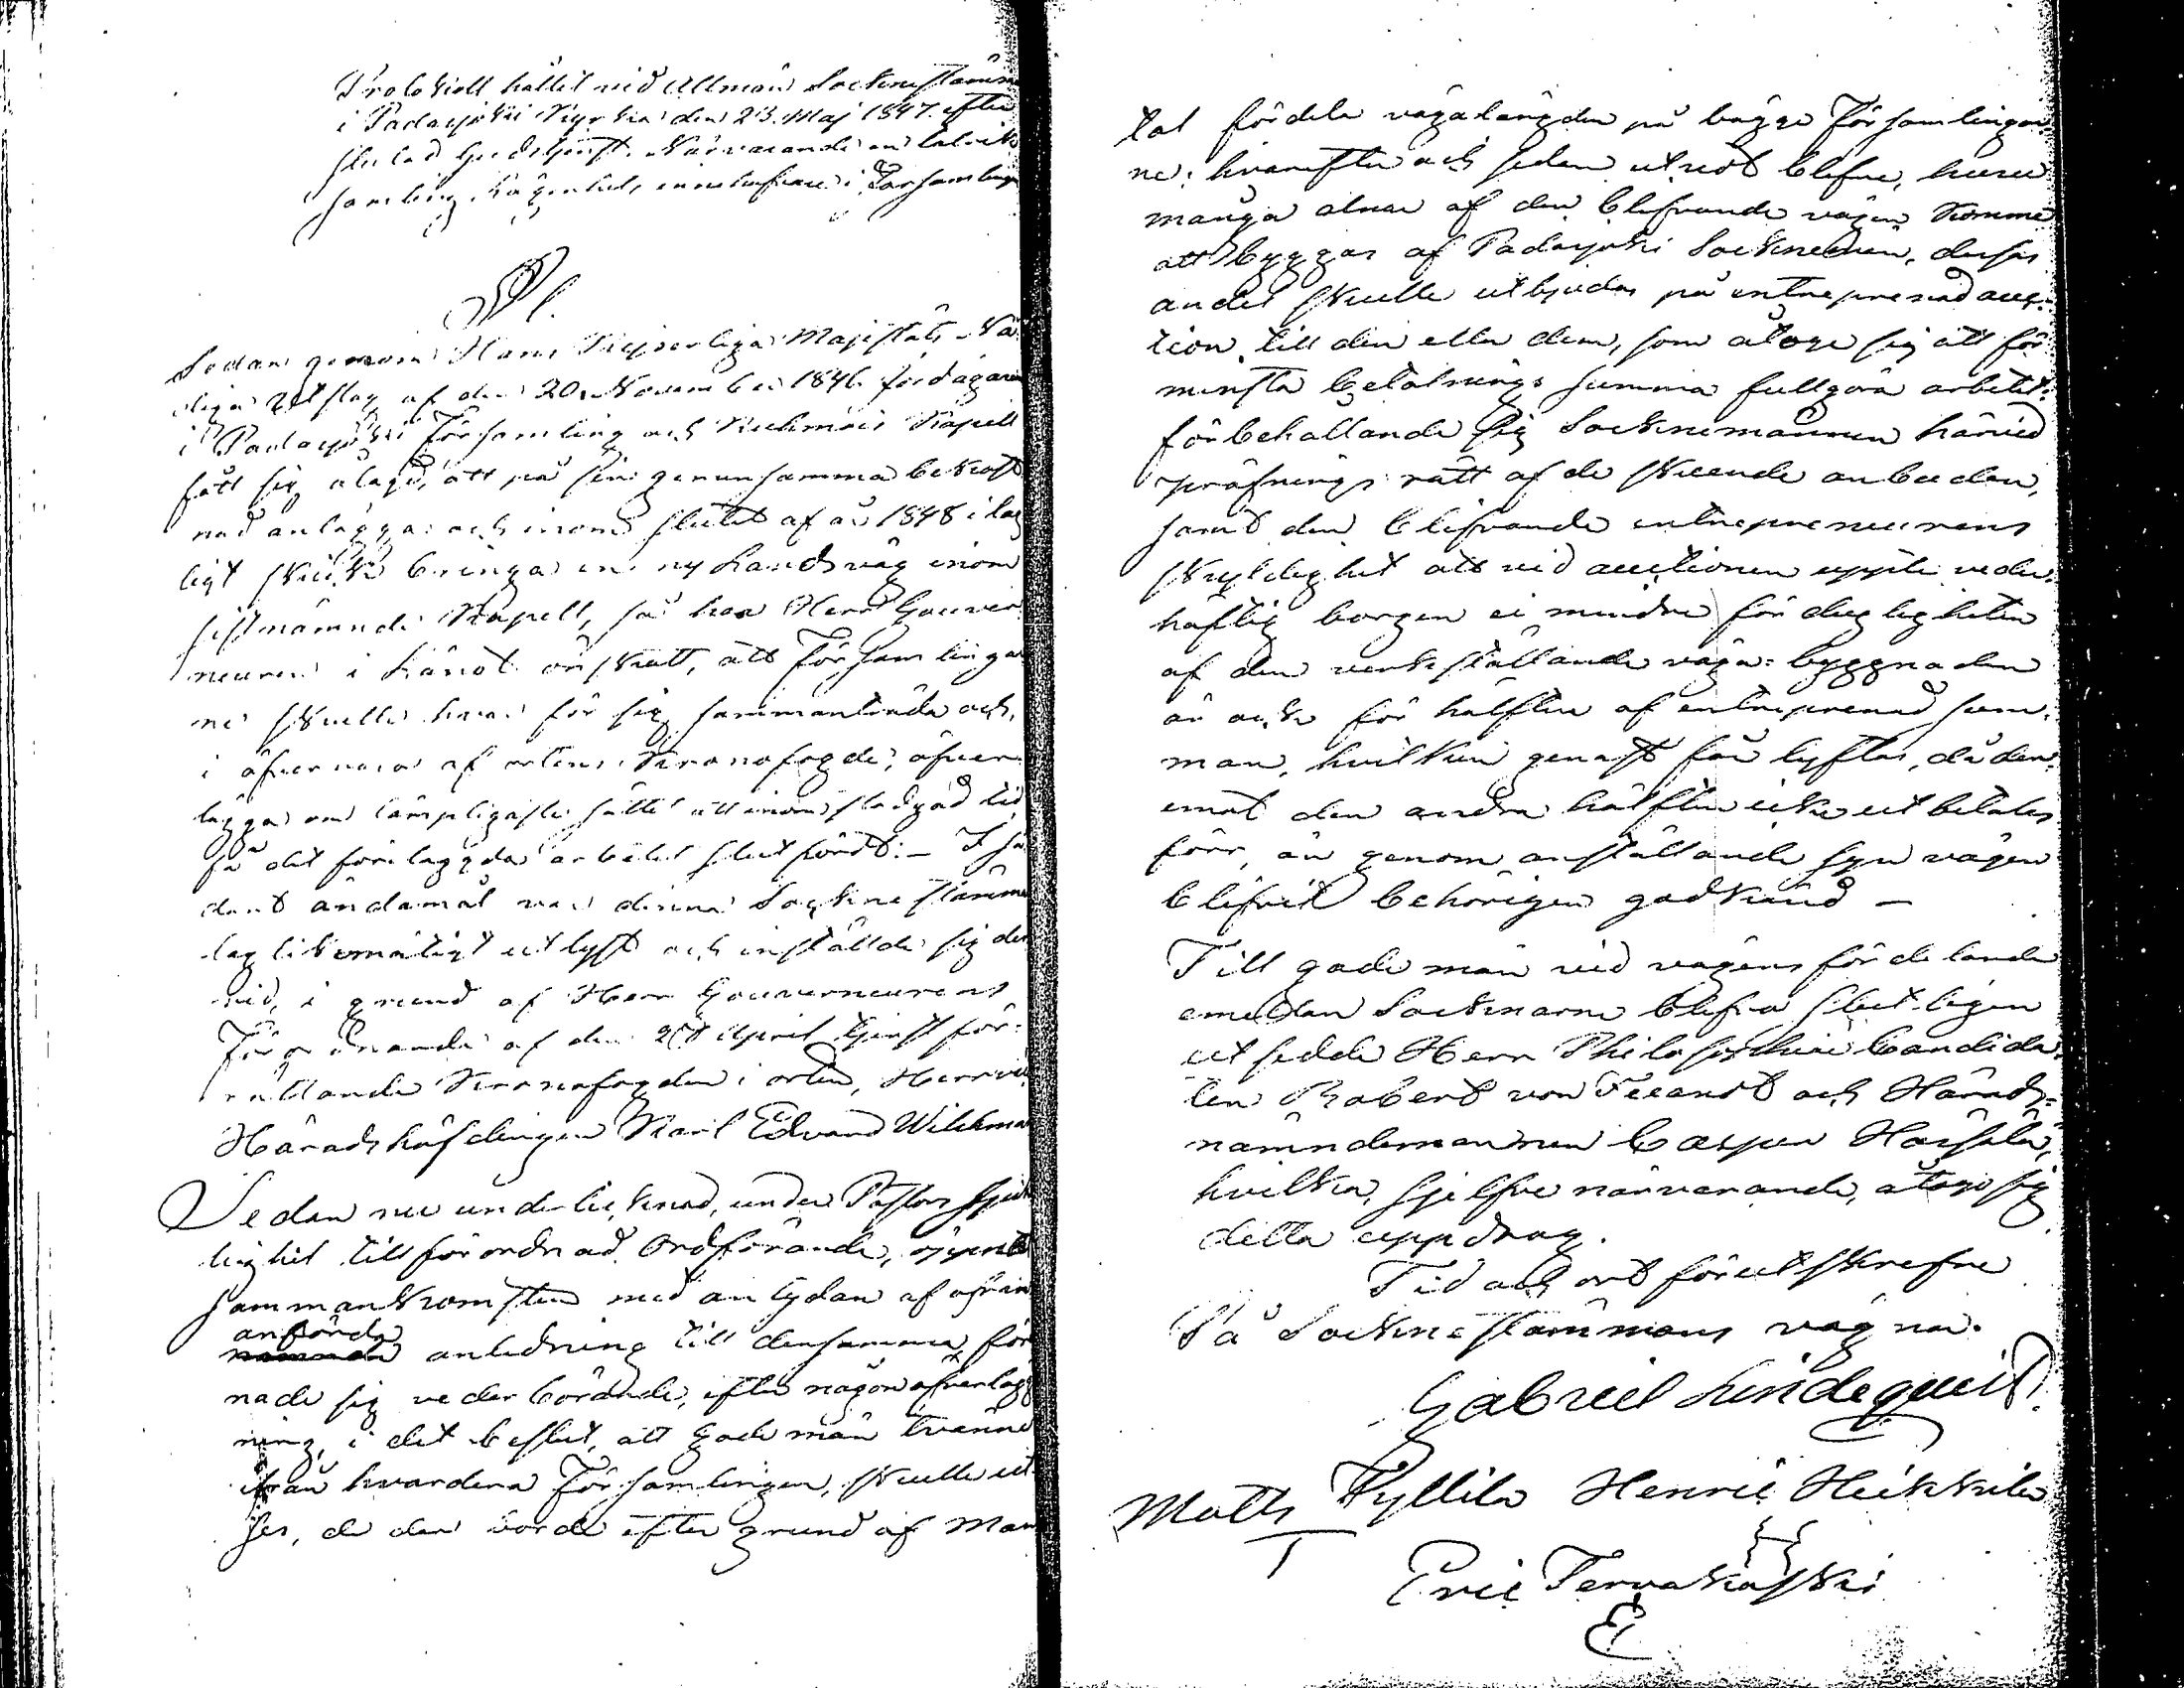 Protokoll hållit vid Allmän Sockenstämma
i Padasjoki Kyrka den 23. Maj 1847. efter
slutad Gudstjenst. Närvarande en talrik
samling hägnetut, innehafvare i Församlingen
§ 1.
Sedan genom Hans Kejserliga Majestäts Nå-
diga Utslag af den 20 November 1846 jordägarene
i Padasjoki Församling och Kuhmois Kapell
fått sig ålagd, att på sin gemensamma bekost-
nad anlägga och inom slutet af år 1848 i lag-
ligt skick bringa en ny Landsväg inom
sistnämnde Kapell, så har Herr Gouver-
neuren i Länet önskat, att Församlingar-
ne skulle hvar för sig sammanträda och,
i öfvervaro af ortens Kronofogde, öfver-
lägga om lämpligaste sättet att inom stadgad tid
få det förelaggda arbetet slutfördt. – I så-
dant ändamål var denna Sockne stämma
lag likmätigt utlyst och inställde sig der-
vid, i grund af Herr Gouverneurens
Förordnande af den 28 April tjenst för-
rättande Kronofogden i orten, Herr vice
Häradshöfdingen Karl Edvard Wilckman
Sedan nu undertecknad, under Pastors sjuk-
lighet tillförordnad Ordförande, öppnat
sammankomsten med antydan af ofvan
anförda
anledning till densamma, före-
nade sig vederbörande, efter någon öfverlägg-
ning, i det beslut, att Gode män tvänne
ifrån hvardera Församlingen, skulle ut-
ses, de der borde efter grund af Man-
tal fördela vägalängden på bägge Församlingar-
ne: hvarefter och sedan utredt blefve, huru
många alnar af den blifvande vägen komme
att byggas af Padasjoki Socknemän, dessas
andel skulle utbjudas på entreprenad auc-
tion till den eller dem, som åtoge sig att för
minsta betalnings summa fullgöra arbetet:
förbehållande sig Socknemännen härvid
pröfnings rätt af de skeende anbuden,
samt den blifvande entrepreneurens
skyldighet att vid auctionen uppte veder-
häftig borgen ei mindre för dugligheten
af den verkställande väga-byggnaden
än ock för hälften af entreprenad sum-
man, hvilken genast får lyftas, då der-
emot den andra hälften icke utbetales
förr, än genom anställande syn vägen
blifvit behörigen godkänd –
Till gode män vid vägens fördelande
emellan Socknarne blefvo slutligen
utsedde Herr Philosophiæ Candida-
ten Robert von Fieandt och Härads-
nämndemannen Casper Hassala,
hvilka, sjelfve närvarande, åtogo sig
detta uppdrag.
Tid och ort förutskrefne
På Sockne stämmans vägnar.
Gabriel Lindequist.
Matts Kyllilä Henric Heikkilä
Eric Tervakoski